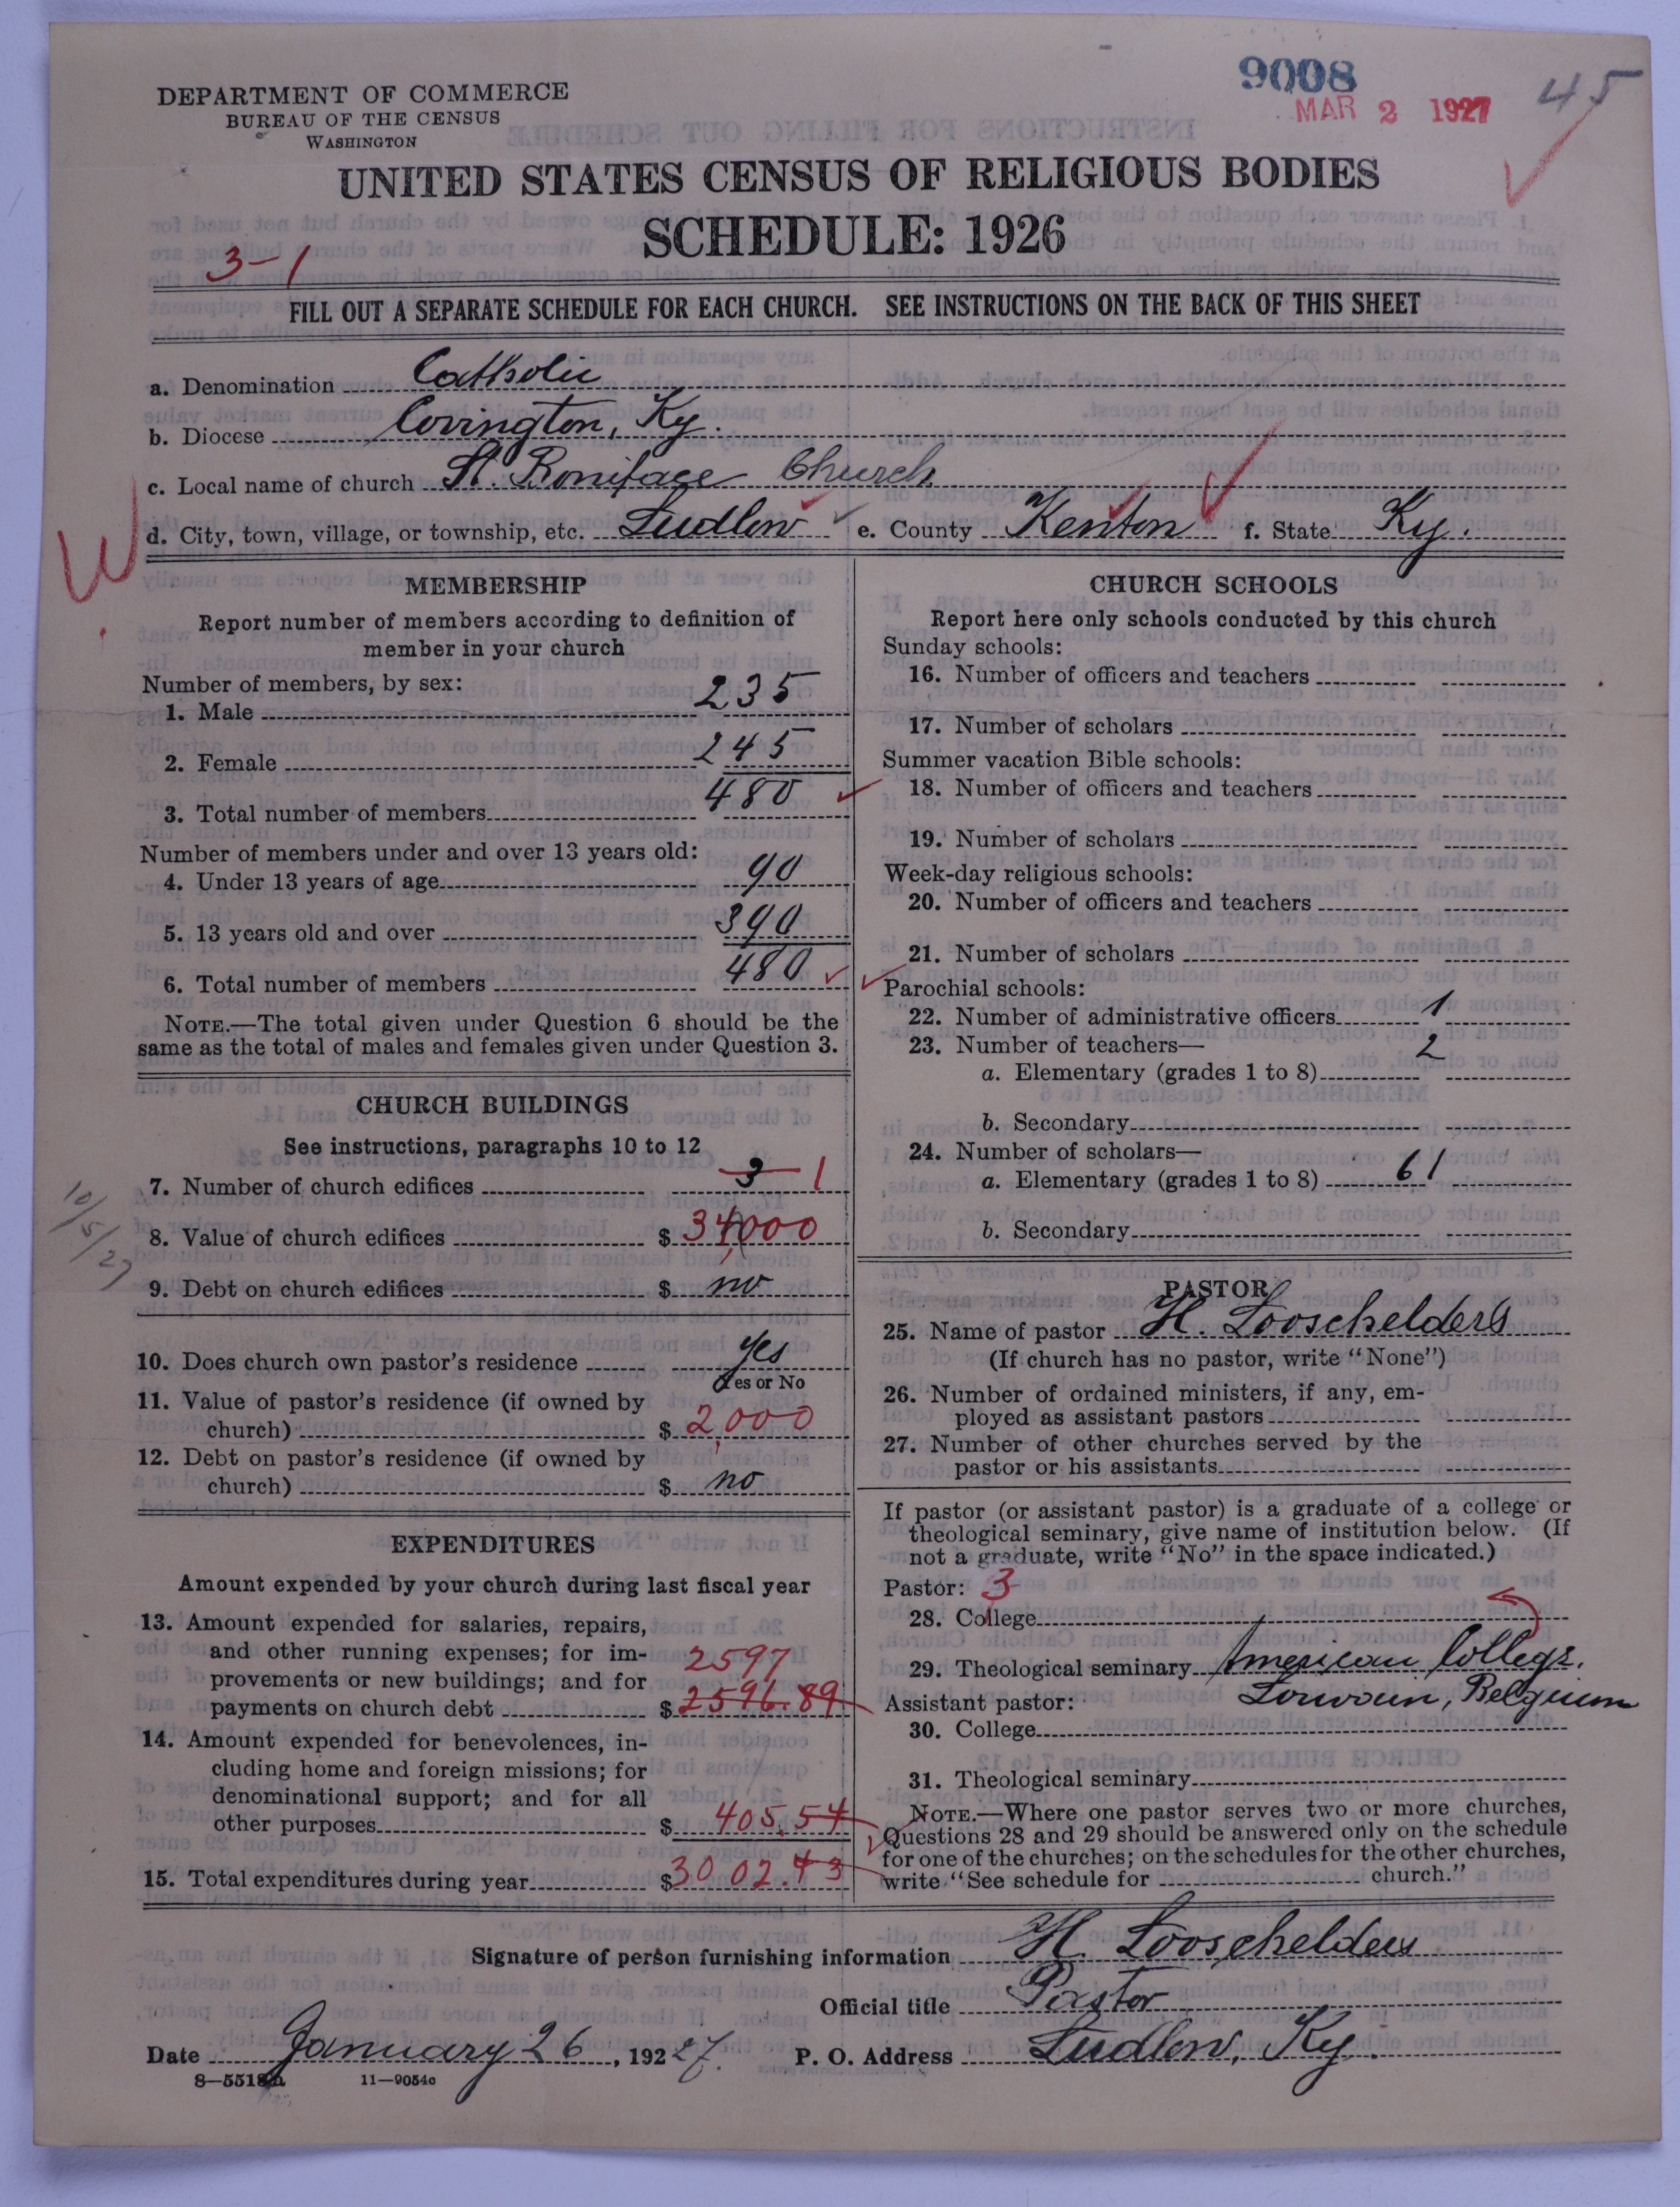 9008
MAR 2 1927
45
DEPARTMENT OF COMMERCE
BUREAU OF THE CENSUS
WASHINGTON
UNITED STATES CENSUS OF RELIGIOUS BODIES
SCHEDULE: 1926
3-1
FILL OUT A SEPARATE SCHEDULE FOR EACH CHURCH. SEE INSTRUCTIONS ON THE BACK OF THIS SHEET
a. Denomination Catholic
b. Diocese Covington, Ky.
c. Local name of church St. Boniface Church
d. City, town, village, or township, etc. Ludlow e. County Kenton f. State Ky.
MEMBERSHIP
Report number of members according to definition of
member in your church
Number of members, by sex:
1. Male 235
2. Female 245
3. Total number of members 480
Number of members under and over 13 years old:
4. Under 13 years of age 90
5. 13 years old and over 390
6. Total number of members 480
NOTE.—The total given under Question 6 should be the
same as the total of males and females given under Question 3.
CHURCH BUILDINGS
See instructions, paragraphs 10 to 12
7. Number of church edifices 3 1
10/5/27
8. Value of church edifices $ 34,000
9. Debt on church edifices $ no
10. Does church own pastor's residence yes
Yes or No
11. Value of pastor's residence (if owned by
church) $ 2,000
12. Debt on pastor's residence (if owned by
church) $ no
EXPENDITURES
Amount expended by your church during last fiscal year
13. Amount expended for salaries, repairs,
and other running expenses; for im-
provements or new buildings; and for
2597
payments on church debt $ 2596.89
14. Amount expended for benevolences, in-
cluding home and foreign missions; for
denominational support; and for all
other purposes $ 405.54
15. Total expenditures during year $ 3002.43
CHURCH SCHOOLS
Report here only schools conducted by this church
Sunday schools:
16. Number of officers and teachers
17. Number of scholars
Summer vacation Bible schools:
18. Number of officers and teachers
19. Number of scholars
Week-day religious schools:
20. Number of officers and teachers
21. Number of scholars
Parochial schools:
22. Number of administrative officers 1
23. Number of teachers—
a. Elementary (grades 1 to 8) 2
b. Secondary
24. Number of scholars—
a. Elementary (grades 1 to 8) 61
b. Secondary
PASTOR
25. Name of pastor H. Looschelders
(If church has no pastor, write "None")
26. Number of ordained ministers, if any, em-
ployed as assistant pastors
27. Number of other churches served by the
pastor or his assistants
If pastor (or assistant pastor) is a graduate of a college or
theological seminary, give name of institution below. (If
not a graduate, write "No" in the space indicated.)
Pastor: 3
28. College
29. Theological seminary American College.
Louvain, Belgium
Assistant pastor:
30. College
31. Theological seminary
NOTE.—Where one pastor serves two or more churches,
Questions 28 and 29 should be answered only on the schedule
for one of the churches; on the schedules for the other churches,
write "See schedule for church."
Signature of person furnishing information H. Looschelders
Official title Pastor
Date January 26, 1927. P. O. Address Ludlow, Ky.
11—9054c